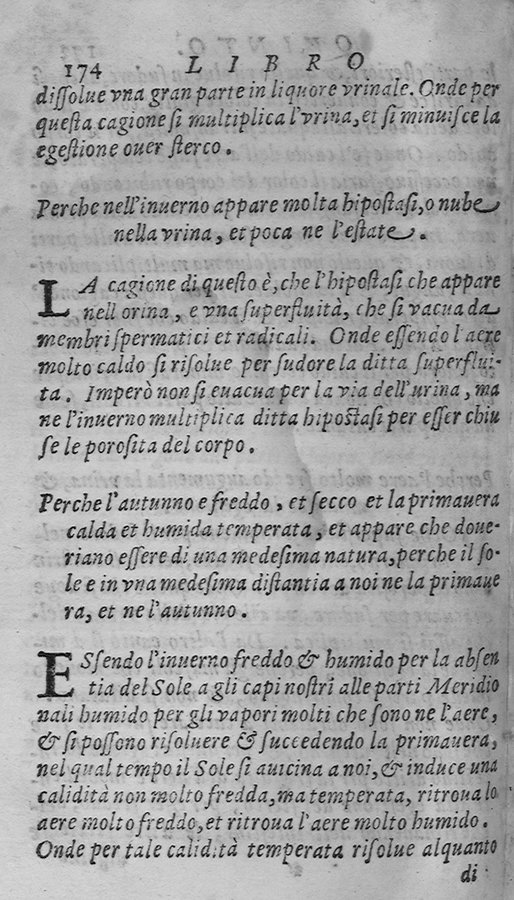 174 LIBRO
dissolue vna gran parte in liquore vrinale. Onde per
questa cagione si multiplica l'vrina, et si minuisce la
egestione ouer sterco.
Perche nell'inuerno appare molta hipostasi, o nube
nella vrina, et poca ne l'estate.
LA cagione di questo è, che l'hipostasi che appare
nell orina, e vna superfluità, che si vacua da
membri spermatici et radicali. Onde essendo l'aere
molto caldo si risolue per sudore la ditta superflui-
ta. Imperò non si euacua per la via dell'urina, ma
ne l'inuerno multiplica ditta hipostasi per esser chiu
se le porosita del corpo.
Perche l'autunno e freddo, et secco et la primauera
calda et humida temperata, et appare che doue-
riano essere di una medesima natura, perche il so-
le e in vna medesima distantia a noi ne la primaue
ra, et ne l'autunno.
ESsendo l'inuerno freddo & humido per la absen
tia del Sole a gli capi nostri alle parti Meridio
nali humido per gli vapori molti che sono ne l'aere,
& si possono risoluere & succedendo la primauera,
nel qual tempo il Sole si auicina a noi, & induce una
calidità non molto fredda, ma temperata, ritroua lo
aere molto freddo, et ritroua l'aere molto humido.
Onde per tale calidità temperata risolue alquanto
di